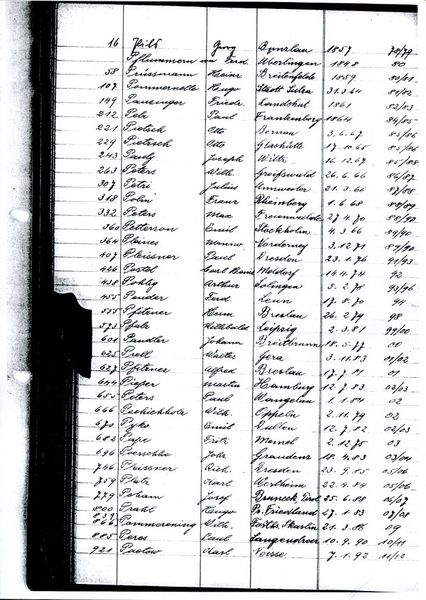 16 Georg Bunzlau 1857 78/79
Pflummern von Ferd. Überlingen 1848 80
58 Prüssmann Heinr. Breitenfelde 1859 81/01
107 Pommerrette Hugo 31.3.64 81/02
149 Pausinger Friedr. Landshut 1861 82/83
212 Pelz Paul Frankenberg 1864 84/85
221 Pietsch Otto Bernau 3.6.67 85/06
229 Pietzsch Otto Glashütte 17.10.65 85/06
243 Pauly Joseph 16.12.67 85/88
263 Peters Wilh. Greifswald 26.6.66 86/87
307 Petri Julius Annweiler 21.3.66 87/88
318 Polin Franz Rheinberg 1.6.68 88/89
332 Peters Max Freienwalde 27.4.70 88/92
360 Petterson Emil Stockholm 4.3.66 89/90
364 Pleines Menno Norderney 3.12.71 89/90
407 Pleissner Paul Dresden 23.1.76 91/93
426 Postel Carl Meldorf 14.4.74 92
438 Pohlig Arthur Solingen 5.2.75 93/96
455 Pander Ferd. 17.8.70 94
555 Pfitzner Herm. Breslau 26.2.79 98
573 Pfalz Willibald Leipzig 2.3.81 99/00
601 Paudler Johann Breitbrunn 18.5.77 00
625 Prell Walter Gera 3.11.83 01/02
627 Pfitzner Alfred Breslau 17.7.81 01
644 Pieper Martin Hamburg 12.7.83 02/03
651 Peters Paul 1.1.84 02
666 Pschichholz Wilh. Oppeln 2.11.79 02
671 Pyko Emil 12.7.82 02/03
682 Pape Fritz Memel 2.12.75 03
696 Pierschke Joh. Graudenz 18.4.83 03/04
746 Pleissner Rich. Dresden 23.9.85 05/06
759 Platz Karl Wertheim 22.4.84 05/06
779 Poham Josef Bruneck, Tirol 25.6.88 06/07
800 Prahl Hugo Pr. Friedland 27.1.83 07/08
837
866 Pommerening Wilh. 21.3.86 09
885 Peres Paul Langendreer 10.9.90 10/11
921 Pustow Karl Neisse 7.1.92 11/12